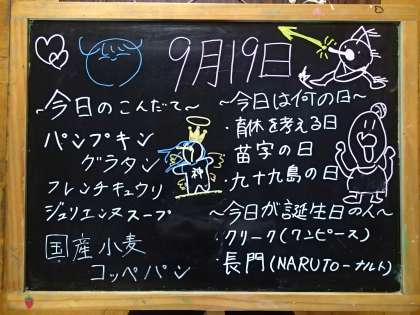 9月19日
～今日のこんだて～
パンプキン
グラタン
フレンチキュウリ
ジュリエンヌスープ
国産小麦
コッペパン
神
～今日は何の日～
・育休を考える日
・苗字の日
・九十九島の日
～今日が誕生日の人～
・クリーク(ワンピース)
・長門(NARUTO-ナルト)